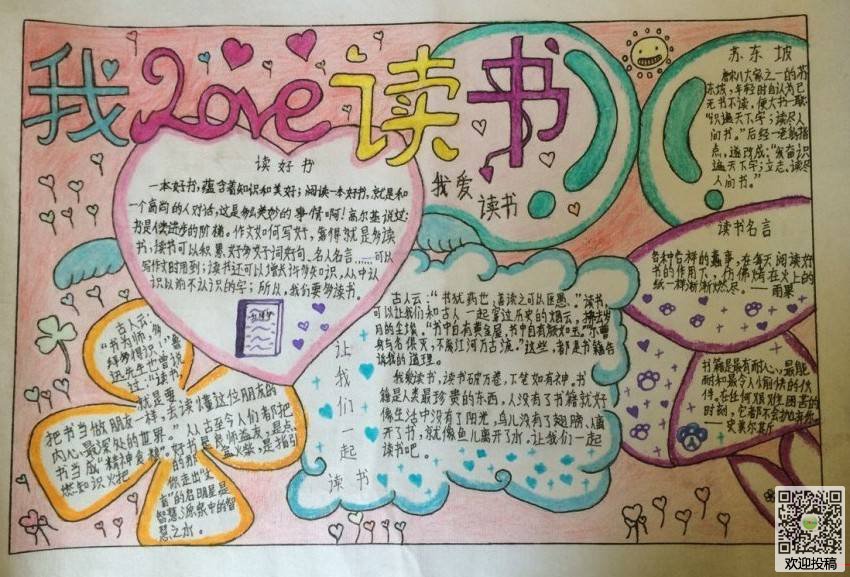 我Love读书
读好书
一本好书，蕴含着知识和美好；阅读一本好书，就是和
一个高尚的人对话，这是多么美妙的事情啊！高尔基说过：
为是人类进步的阶梯。作文如何写好，靠得就是多读
书；读书可以积累好多好词好句、名人名言……可以
写作文时用到；读书还可以增长许多知识，从中认
识以前不认识的字；所以，我们要多读书。
我爱
读书
苏东坡
唐宋八大家之一的苏
东坡，年轻时自认为已
无书不读，便大书一联：
“识遍天下字；读尽人
间书。”后经一老翁指
点，遂改成：“发奋识
遍天下字；立志读尽
人间书。”
读书名言
各种各样的蠢事，在每天阅读好
书的作用下，仿佛烤在火上的
纸一样渐渐燃尽。——雨果
书籍是最有耐心、最能
忍耐和最令人愉快的伙
伴。在任何艰难困苦的
时刻，它都不会抛弃你。
——史美尔斯
古人云：“书犹药也，善读之可以医愚。”读书，
可以让我们和古人一起穿过历史的烟云，拂去岁
月的尘埃。“书中自有黄金屋，书中自有颜如玉。”“尔曹
身与名俱灭，不废江河万古流。”这些，都是书籍告
诉我的道理。
我爱读书，读书破万卷，下笔如有神。书
籍是人类最珍贵的东西，人没有了书籍就好
像生活中没有了阳光，鸟儿没有了翅膀，人离
开了书，就像鱼儿离开了水。让我们一起
读书吧。
让
我
们
一
起
读书
古人云：
“书为师，多
拜多得识”，鲁
迅先生也曾说
过：“读书
就是要
把书当做朋友一样，去读懂这位朋友的
内心最深处的世界。”从古至今人们都把
书当成“精神食粮”。好书是良师益友，是点
燃知识火把的那一盒火柴，是指引
你走出“盲
盲”的启明星是
智慧源泉中的智
慧之水。
欢迎投稿